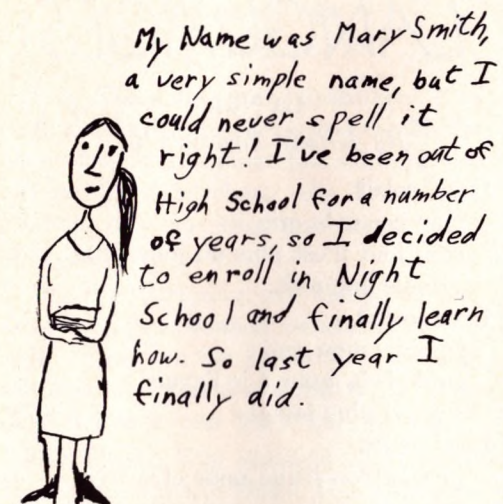 My Name was Mary Smith,
a very simple name, but I
could never spell it
right! I've been out of
High School for a number
of years, so I decided
to enroll in Night
School and finally learn
how. So last year I
finally did.